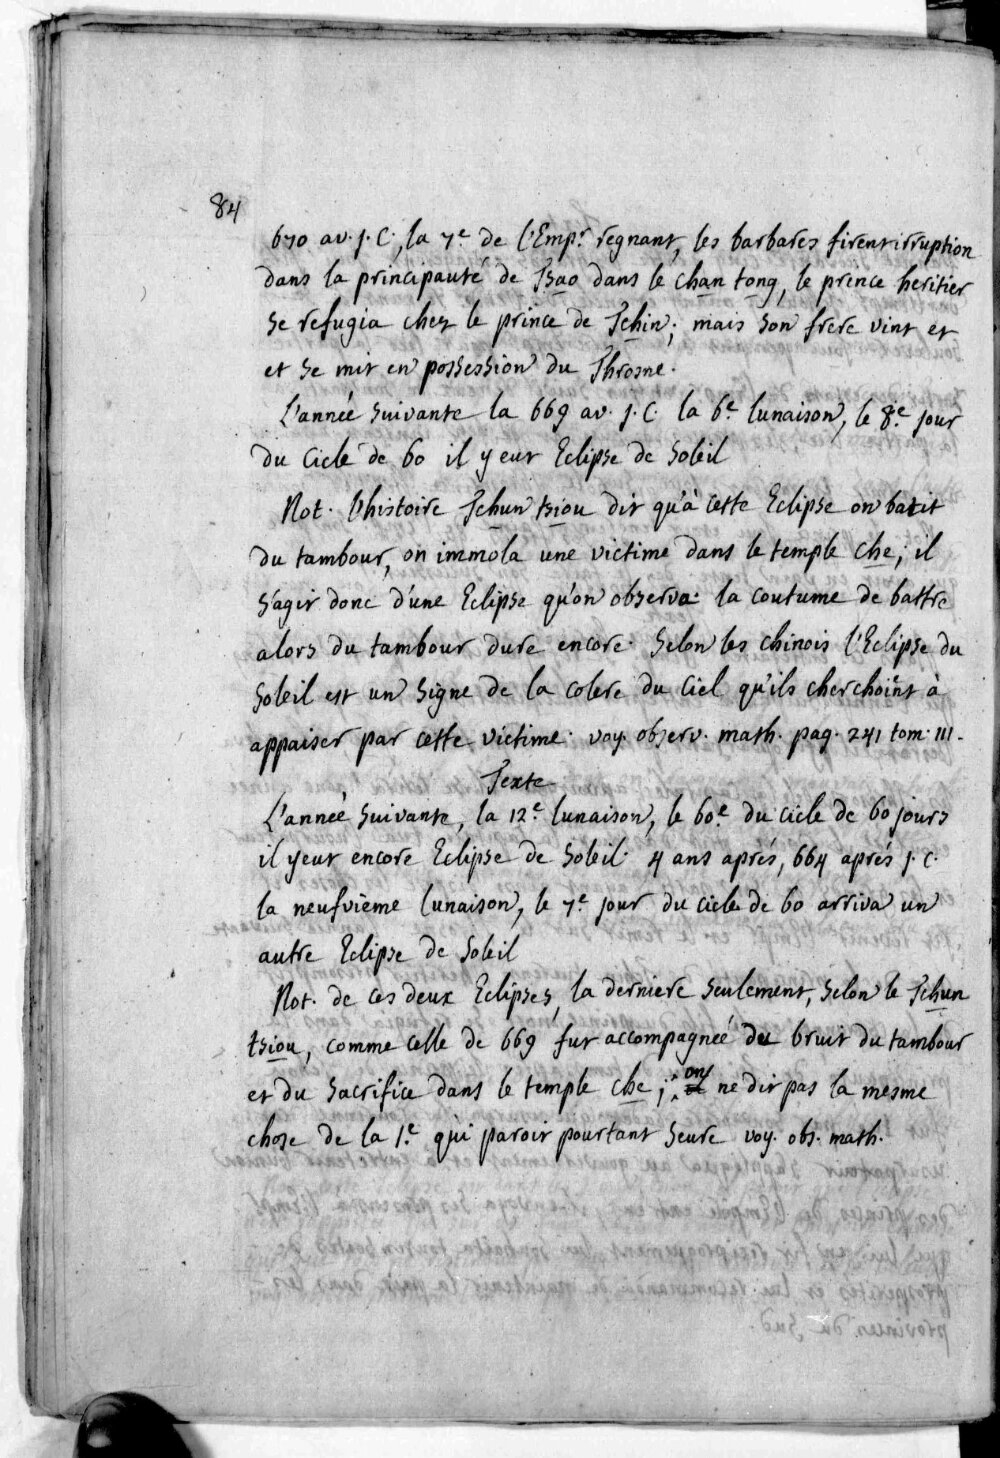 84
670 av. J. C., la 7.e de l'Emp.r regnant, les barbares firent irruption
dans la principauté de Tsao dans le chan tong, le prince heritier
se refugia chez le prince de Tchin; mais son frere vint et
et se mit en possession du Throsne.
L'année suivante la 669 av. J. C. la 6.e lunaison, le 8.e jour
du cicle de 60 il y eut Eclipse de Soleil
Not. l'histoire Tchun tsiou dit qu'à cette Eclipse on batit
du tambour, on immola une victime dans le temple che; il
s'agit donc d'une Eclipse qu'on observa. la coutume de battre
alors du tambour dure encore. Selon les chinois l'Eclipse du
Soleil est un signe de la colere du Ciel qu'ils cherchoint à
appaiser par cette victime. voy. observ. math. pag. 241 tom. III.
Texte
L'année suivante, la 12.e lunaison, le 60.e du cicle de 60 jours
il y eut encore Eclipse de Soleil. 4 ans aprés, 664 aprés J. C.
la neufvième lunaison, le 7.e jour du cicle de 60 arriva un
autre Eclipse de Soleil
Not. de ces deux Eclipses, la derniere seulement, selon le Tchun
tsiou, comme celle de 669 fut accompagnée du bruit du tambour
et du sacrifice dans le temple che; on ne dit pas la mesme
chose de la 1.e qui paroit pourtant seure voy. obs. math.